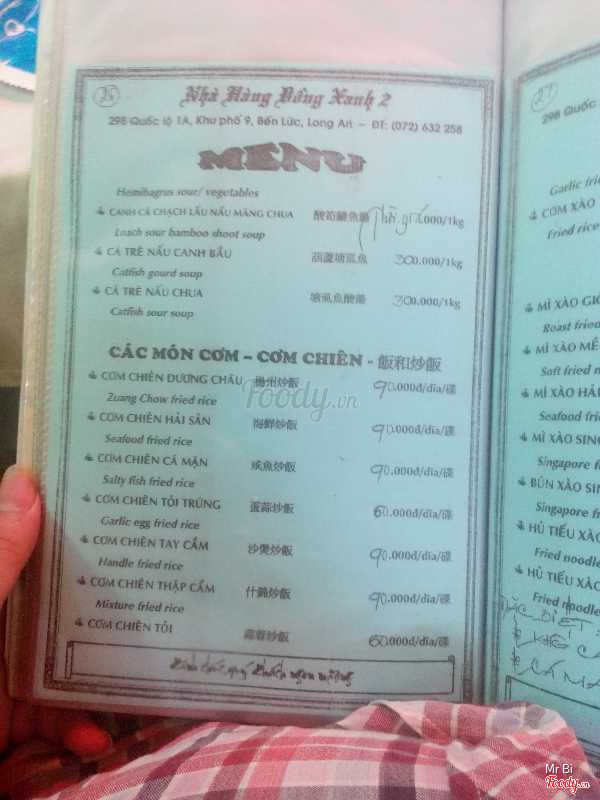 25
Nhà Hàng Đồng Xanh 2
298 Quốc lộ 1A, Khu phố 9, Bến Lức, Long An - ĐT: (072) 632 258
MENU
Hemibagrus sour/ vegetables
CANH CÁ CHẠCH LẤU NẤU MĂNG CHUA 酸筍鱔魚湯 Thời giá.000/1kg
Loach sour bamboo shoot soup
CÁ TRÊ NẤU CANH BẦU 葫蘆塘虱魚 300.000/1kg
Catfish gourd soup
CÁ TRÊ NẤU CHUA 塘虱魚酸湯 300.000/1kg
Catfish sour soup
CÁC MÓN CƠM – CƠM CHIÊN - 飯和炒飯
CƠM CHIÊN DƯƠNG CHÂU 楊州炒飯 90.000đ/dĩa/碟
Zuang Chow fried rice
CƠM CHIÊN HẢI SẢN 海鮮炒飯 90.000đ/dĩa/碟
Seafood fried rice
CƠM CHIÊN CÁ MẶN 咸魚炒飯 90.000đ/dĩa/碟
Salty fish fried rice
CƠM CHIÊN TỎI TRỨNG 蛋蒜炒飯 60.000đ/dĩa/碟
Garlic egg fried rice
CƠM CHIÊN TAY CẦM 沙煲炒飯 90.000đ/dĩa/碟
Handle fried rice
CƠM CHIÊN THẬP CẨM 什錦炒飯 90.000đ/dĩa/碟
Mixture fried rice
CƠM CHIÊN TỎI 蒜蓉炒飯 60.000đ/dĩa/碟
Kính chúc quý khách ngon miệng
27
298 Quốc
Garlic fri
CƠM XÀO
Fried rice
MÌ XÀO GIÒ
Roast fried
MÌ XÀO MỀ
Soft fried n
MÌ XÀO HẢI
Seafood fri
MÌ XÀO SING
Singapore f
BÚN XÀO SIN
Singapore fr
HỦ TIẾU XÀO
Fried noodle
HỦ TIẾU XÀO
Fried noodle
ĐẶC BIỆT:
Foody.vn
Mr Bi
Foody.vn